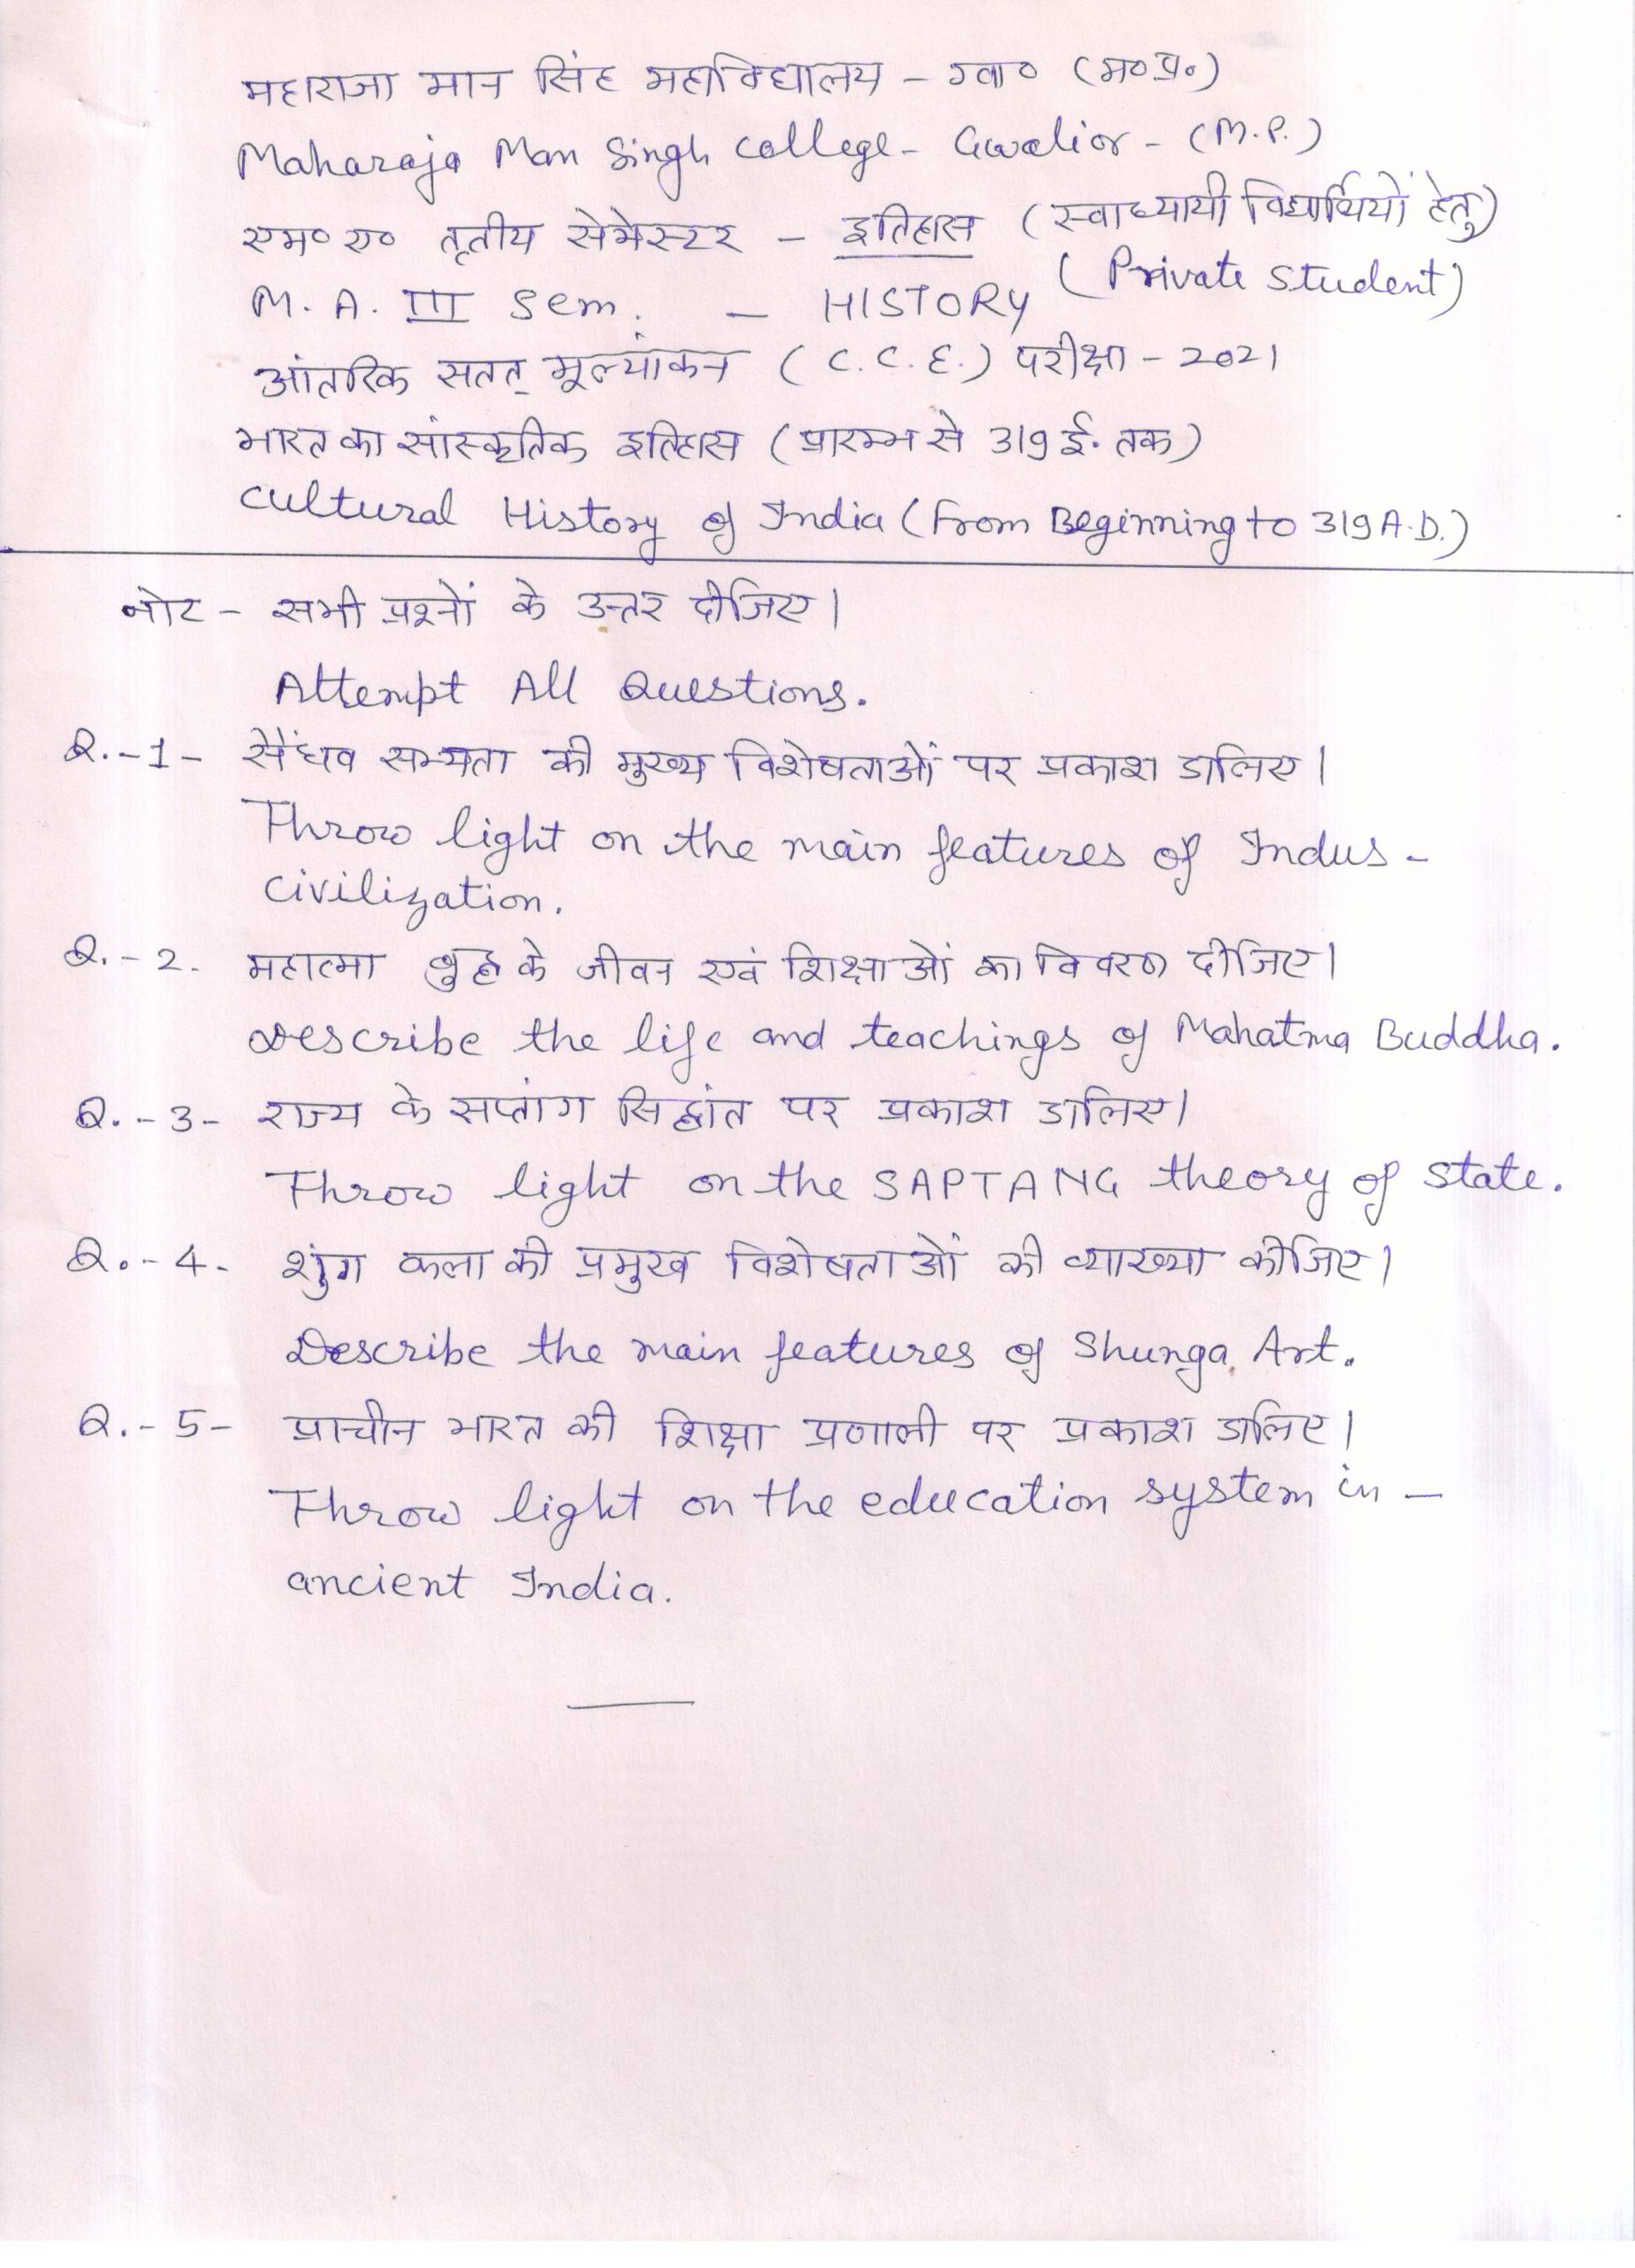 महाराजा मान सिंह महाविद्यालय – ग्वा० (म०प्र०)
Maharaja Man Singh College - Gwalior - (M.P.)
एम० ए० तृतीय सेमेस्टर – इतिहास (स्वाध्यायी विद्यार्थियों हेतु)
M. A. III Sem. – HISTORY (Private Student)
आंतरिक सतत् मूल्यांकन (C.C.E.) परीक्षा - 2021
भारत का सांस्कृतिक इतिहास (प्रारम्भ से 319 ई. तक)
Cultural History of India (From Beginning to 319 A.D.)
नोट - सभी प्रश्नों के उत्तर दीजिए।
Attempt All Questions.
Q.-1- सैंधव सभ्यता की मुख्य विशेषताओं पर प्रकाश डालिए।
Throw light on the main features of Indus -
civilization.
Q.-2. महात्मा बुद्ध के जीवन एवं शिक्षाओं का विवरण दीजिए।
Describe the life and teachings of Mahatma Buddha.
Q.-3- राज्य के सप्तांग सिद्धांत पर प्रकाश डालिए।
Throw light on the SAPTANG theory of state.
Q.-4. शुंग कला की प्रमुख विशेषताओं की व्याख्या कीजिए।
Describe the main features of Shunga Art.
Q.-5- प्राचीन भारत की शिक्षा प्रणाली पर प्रकाश डालिए।
Throw light on the education system in –
ancient India.